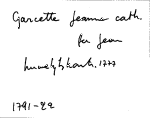 Garcette Jeanne cath.
fa Jean
1777
1791-92